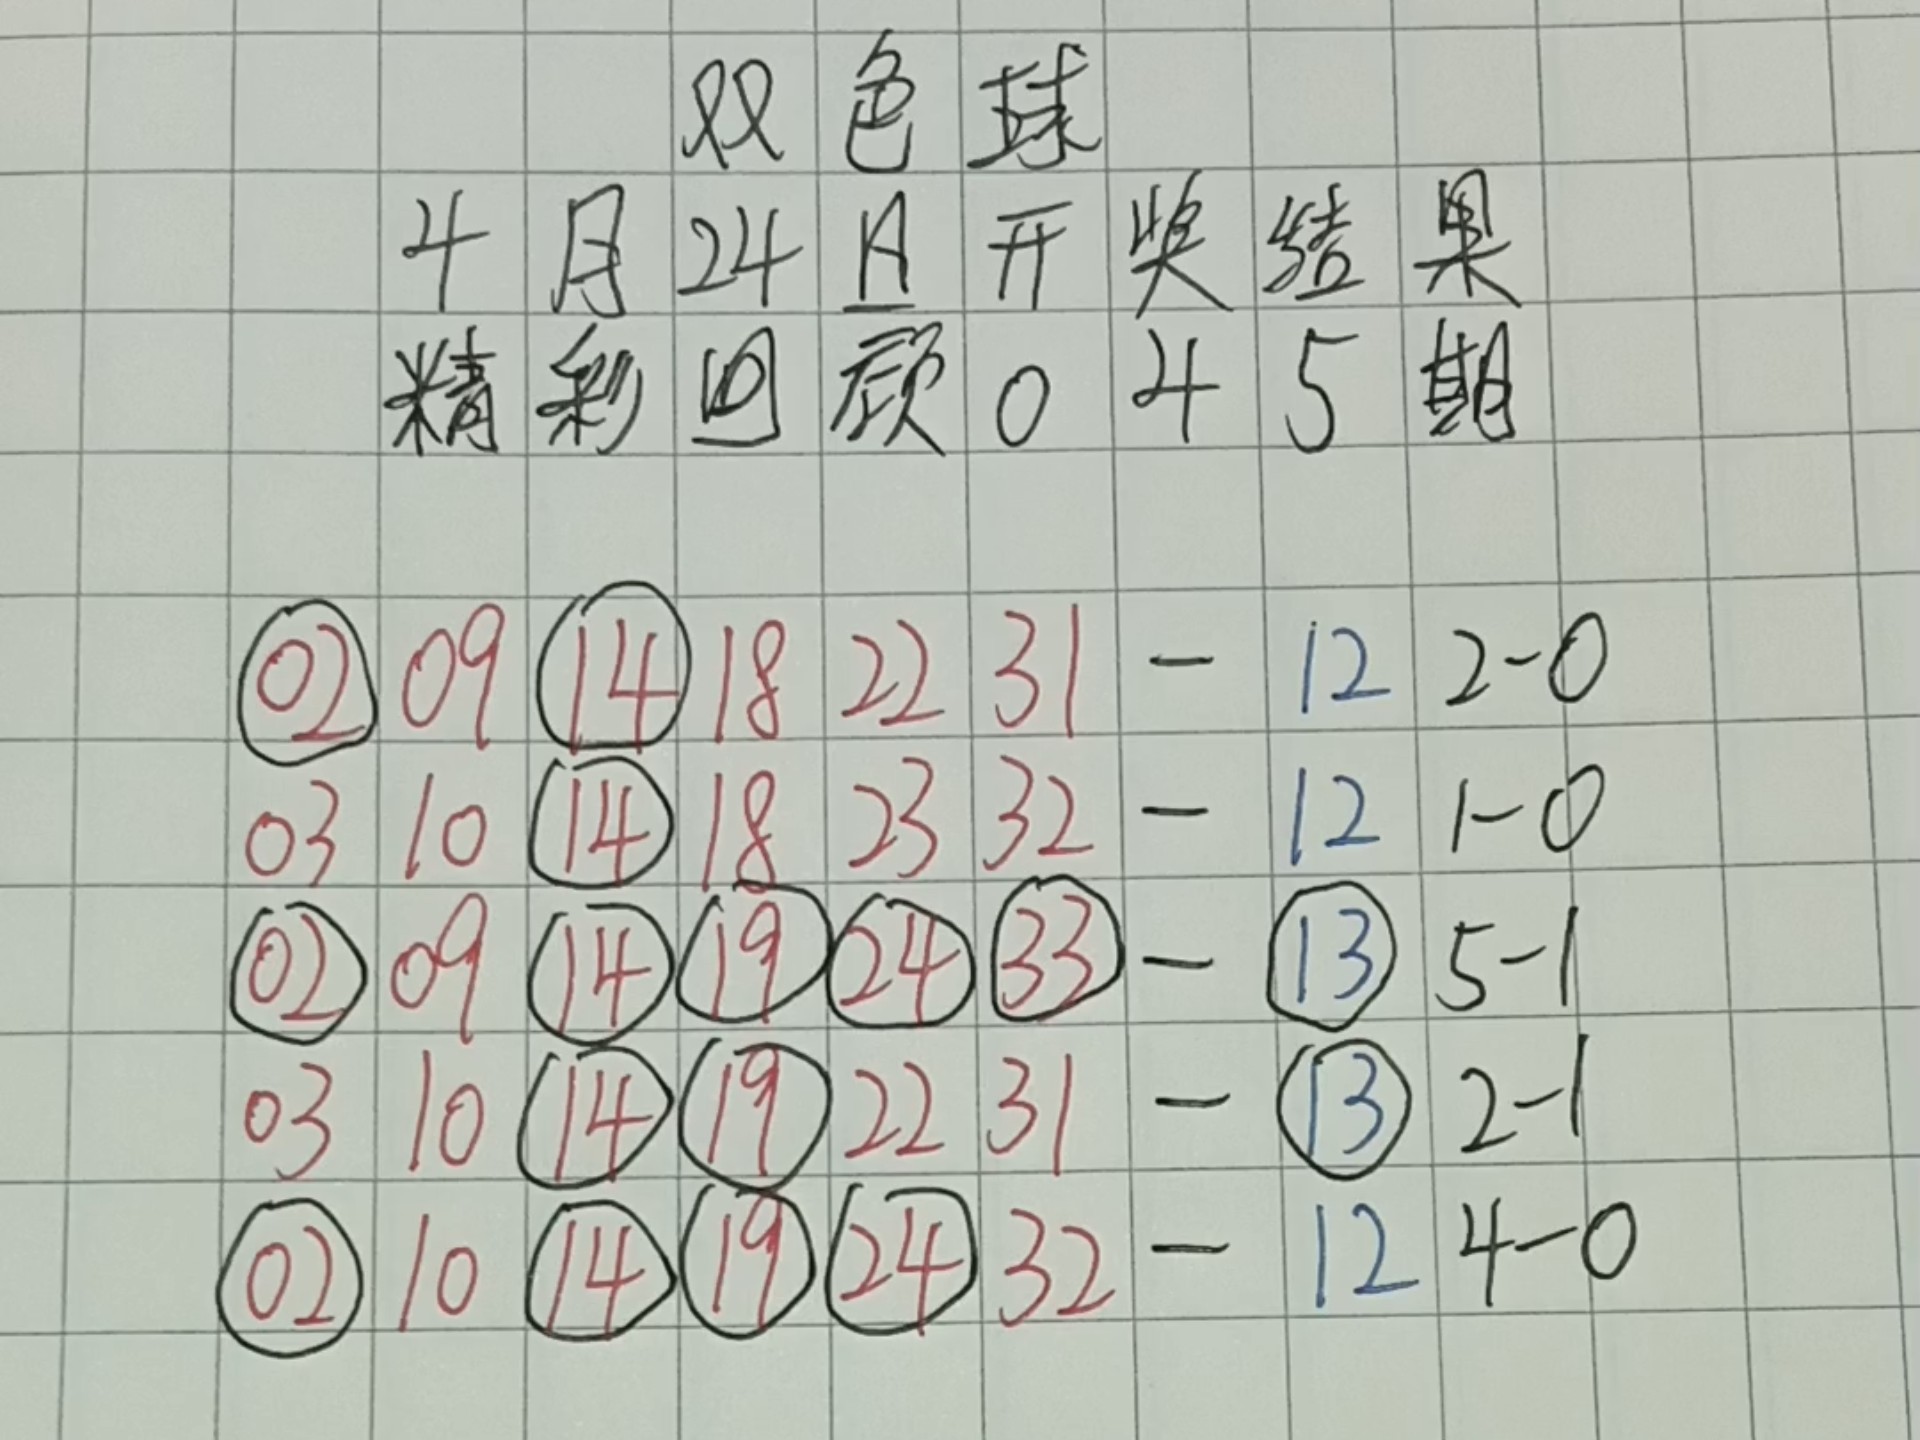 双色球
4月24日开奖结果
精彩回顾045期
02 09 14 18 22 31 - 12 2-0
03 10 14 18 23 32 - 12 1-0
02 09 14 19 24 33 - 13 5-1
03 10 14 19 22 31 - 13 2-1
02 10 14 19 24 32 - 12 4-0